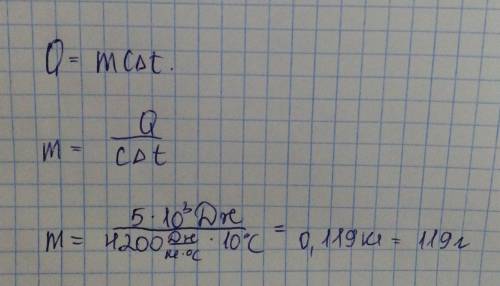 Q = mcΔt.
m = Q / cΔt
m = 5·10³ Дж / 4200 Дж/кг·°C · 10°C = 0,119 кг = 119 г